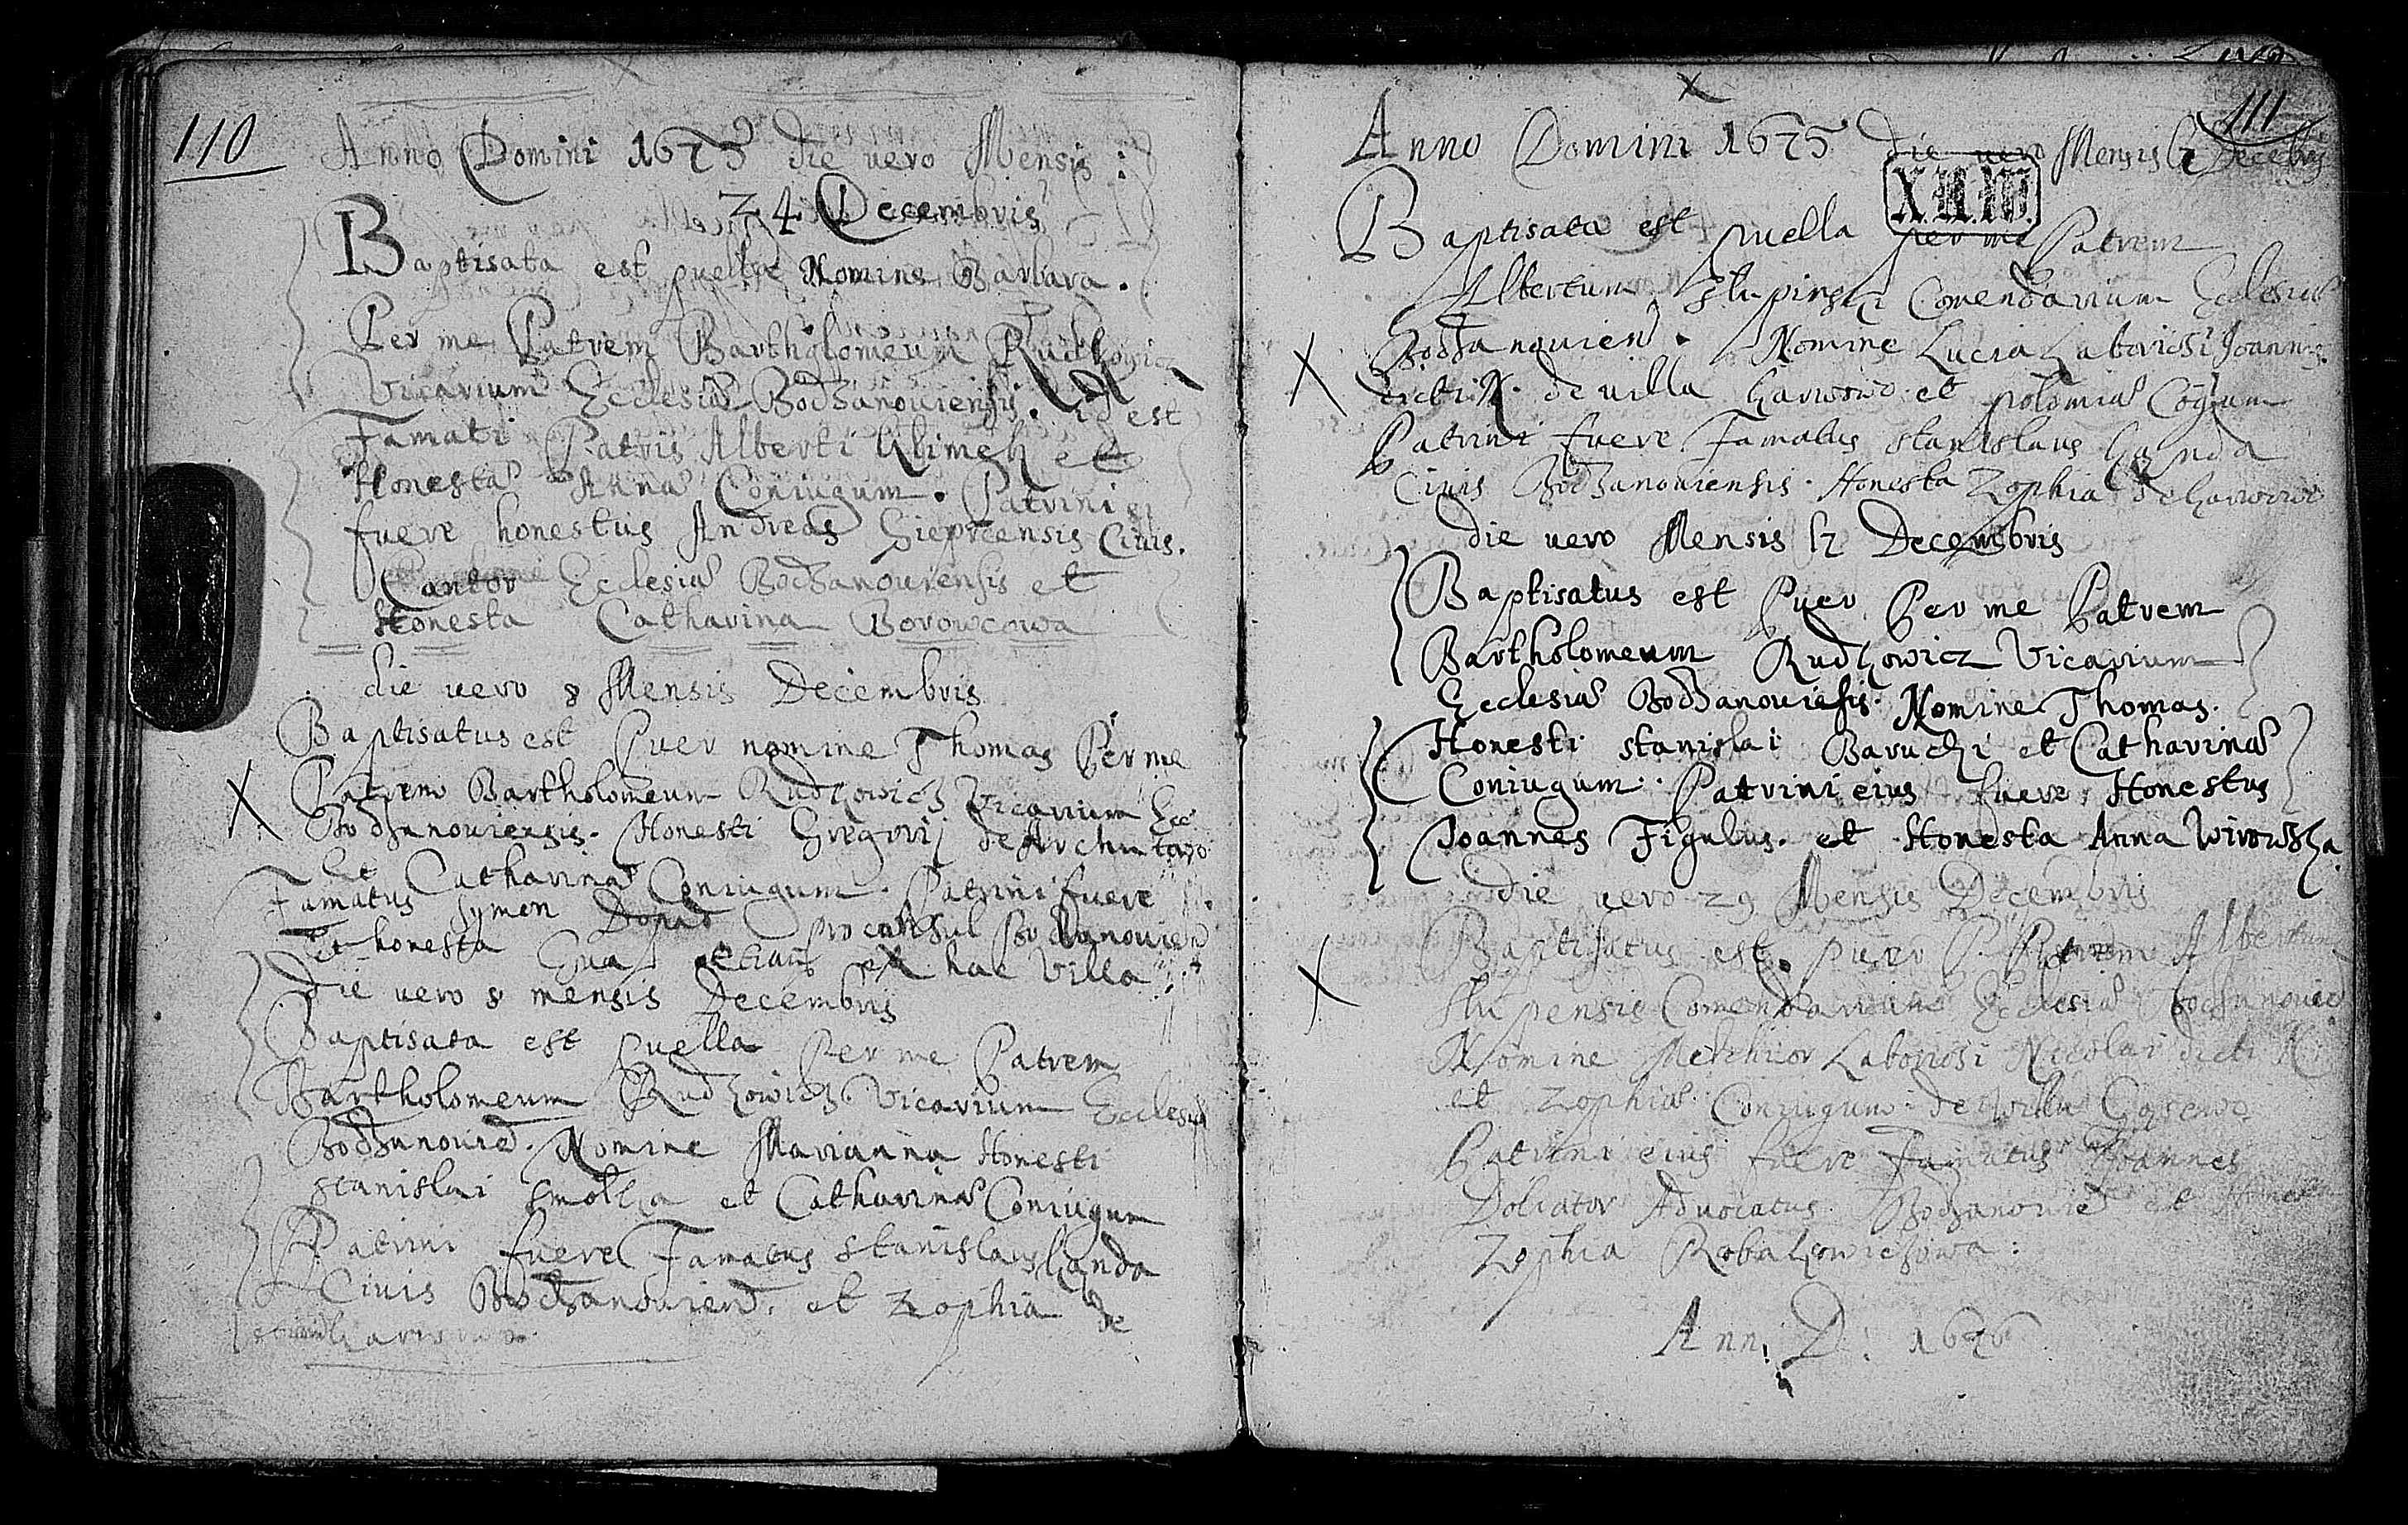 110
Anno Domini 1675 die vero Mensis:
24 Decembris
Baptisata est puella Nomine Barbara.
Per me Patrem Bartholomeum Rudkowicz
Vicarium Ecclesiæ Bodzanouiensis. id est
Famati Patris Alberti Klimek et
Honestæ Annæ Coniugum. Patrini ei
fuere honestus Andreas Sieprcensis Ciuis.
Cantor Ecclesiæ Bodzanouiensis et
Honesta Catharina Borowcowa
die vero 8 Mensis Decembris
Baptisatus est Puer nomine Thomas Per me
Patrem Bartholomeum Rudkowicz Vicarium Ecc
Bodzanouiensis. Honesti Gregorij de
Et Catharinæ Coniugum. Patrini fuere
Famatus Symon proconsul Bodzanouien
Et honesta Eua etiam ex hac Villa
Die vero 8 mensis Decembris
Baptisata est Puella Per me Patrem
Bartholomeum Rudkowicz Vicarium Ecclesiæ
Bodzanouien. Nomine Marianna Honesti
Stanislai Smolka et Catharinæ Coniugum
Patrini fuere Famatus Stanislaus Kanda
Ciuis Bodzanouien. et Zophia de
111
Anno Domini 1675 die vero Mensis 12 Decebris
X.M.IV.
Baptisata est puella per me Patrem
Albertum Slupinski Comendarium Ecclesiæ
Bodzanouien. Nomine Lucia Laboriosi Joannis
dicti N. de villa et Coğum
Patrini fuere Famatus Stanislaus Kanda
Ciuis Bodzanouiensis. Honesta Zophia de
die vero Mensis 12 Decembris
Baptisatus est Puer Per me Patrem
Bartholomeum Rudkowicz Vicarium
Ecclesiæ Bodzanouiesis. Nomine Thomas.
Honesti Stanislai Baruchi et Catharinæ
Coniugum. Patrini eius fuere Honestus
Joannes Figulus. et Honesta Anna
die vero 29 Mensis Decembris
Baptisatus est puer P. Patrem Albertum
Slupensis Comendarium Ecclesiæ Bodzanouien
Nomine Melchior Laboriosi Nicolai dicti N
et Zophiæ Coniugum. de villa
Patrini eius fuere Famatus Joannes
Doliator Aduocatus Bodzanouien et
Zophia
Ann: D: 1676